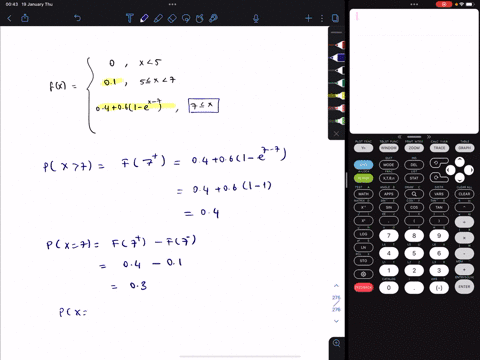 00:43 19 January Thu
0 , x < 5
f(x) = 0.1 , 5 ≤ x < 7
0.4 + 0.6 (1 - e^{x-7}) , 7 ≤ x
P(X > 7) = F(7⁺) = 0.4 + 0.6 (1 - e^{7-7})
= 0.4 + 0.6 (1 - 1)
= 0.4
P(X = 7) = F(7⁺) - F(7⁻)
= 0.4 - 0.1
= 0.3
P(X =
275
276
WINDOW ZOOM TRACE GRAPH
2ND MODE DEL
ALPHA X,T,θ,n STAT
MATH APPS PRGM VARS CLEAR
SIN COS TAN
7 8 9
LOG 4 5 6
LN 1 2 3
STO
0 . (-) ENTER